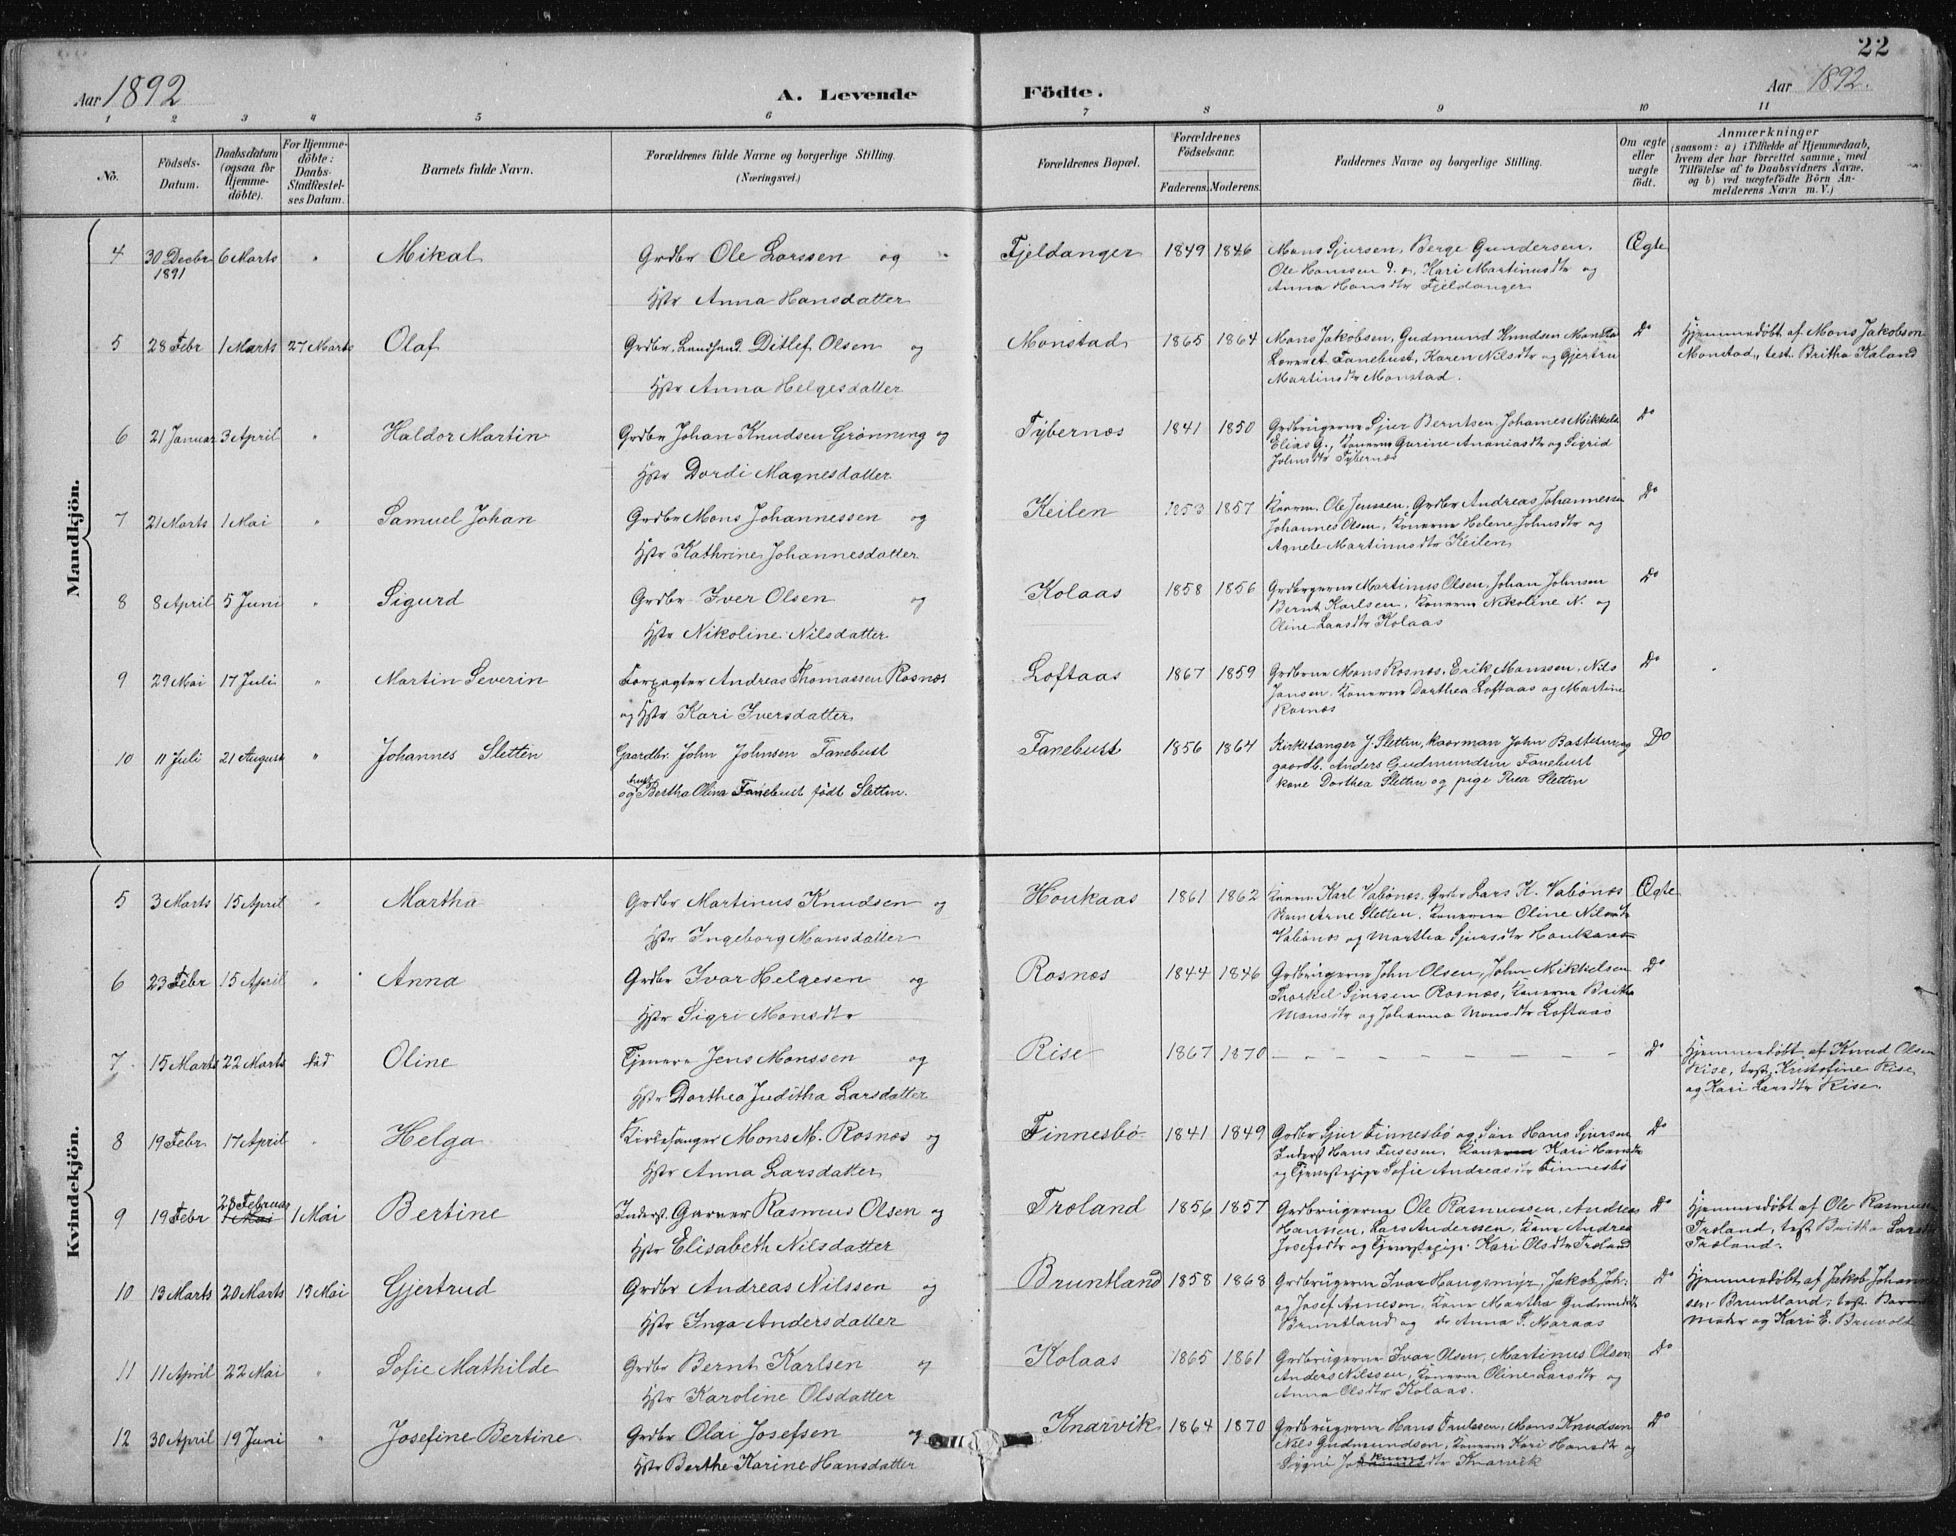 22
Aar 1892
A. Levende Födte.
Aar 1892.
1 2 3 4 5 6 7 8 9 10 11
No.
Födsels-Datum.
Daabsdatum (ogsaa for Hjemme-döbte).
For Hjemme-döbte: Daabs-Stadfæstel-ses Datum.
Barnets fulde Navn.
Forældrenes fulde Navne og borgerlige Stilling. (Næringsvei.)
Forældrenes Bopæl.
Forældrenes Födselsaar.
Faderens. Moderens.
Faddernes Navne og borgerlige Stilling.
Om ægte eller uægte födt.
Anmærkninger
(saasom: a) i Tilfælde af Hjemmedaab, hvem der har forrettet samme, med Tilföielse af to Daabsvidners Navne, og b) ved uægtefödte Börn An-melderens Navn m. V.)
Mandkjön.
4 30 Decbr 6 Marts " Mikal Grdbr Ole Larssen og Fjeldanger 1849 1846 Mons Sjursen, Berge Gundersen, Ægte
1891 Ole Hanssen d. o, Kari Martinusdtr og
Hstr Anna Hansdatter Anna Hansdtr Fjeldanger
5 28 Febr 1 Marts 27 Marts Olaf Grdbr, Landhand. Ditlef Olsen og Monstad 1865 1864 Mons Jakobsen, Gudmund Knudsen Do Hjemmedøbt af Mons Jakobsen
Fanebust, Karen Nilsdtr og Gjertru Monstad, test. Britha Kaland
Hstr Anna Helgesdatter Martinsdtr Monstad.
6 21 Januar 3 April " Haldor Martin Grdbr Johan Knudsen Grønning og Tybernæs 1841 1850 Grdbrugerne Sjur Berntsen, Johannes Do
Elias G., Konerne Gurine Ananiasdtr og Sigrid
Hstr Dordi Magnesdatter Johnsdtr Tybernæs
7 21 Marts 1 Mai " Samuel Johan Grdbr Mons Johannessen og Keilen 1853 1857 Ole Jenssen, Grdbr Andreas Johannessen Do
Johannes Olsen, Konerne Helene Johnsdtr og
Hstr Kathrine Johannesdatter Agnete Martinusdtr Keilen
8 8 April 5 Juni " Sigurd Grdbr Iver Olsen og Kolaas 1858 1856 Martinus Olsen, Johan Johnsen Do
Bernt Karlsen, Konerne Nikoline N. og
Hstr Nikoline Nilsdatter Oline Larsdtr Kolaas
9 29 Mai 17 Juli " Martin Severin Forpagter Andreas Thomassen Rosnæs Loftaas 1867 1859 Mons Rosnæs, Erik Monssen, Nils Do
Jansen, Konerne Dorthea Loftaas og Martine
og Hstr Kari Iversdatter Rosnæs
10 11 Juli 21 August " Johannes Sletten Gaardbr. John Johnsen Fanebust Fanebust 1856 1864 Kirkesanger J. Sletten, John Do
gaardb. Anders Gudmundsen Fanebust
og hustr Bertha Olina Fanebust født Sletten. kone Dorthea Sletten og pige Thea Sletten
Kvindekjön.
5 3 Marts 15 April " Martha Grdbr Martinus Knudsen og Houkaas 1861 1862 Karl Vabønæs, Grdbr Lars K. Vabønæs Ægte
Arne Sletten, Konerne Oline Nilsdtr
Hstr Ingeborg Monsdatter Vabønæs og Martha Sjursdtr Houkaas
6 23 Febr 15 April " Anna Grdbr Ivar Helgesen og Rosnæs 1844 1846 Grdbrugerne John Olsen, John Mikkelsen Do
Thorkel Sjursen Rosnæs, Konerne Britha
Hstr Sigri Monsdtr Monsdtr og Johanna Monsdtr Loftaas
7 15 Marts 22 Marts død Oline Tjener Jens Monssen og Rise 1867 1870 - - - - - - - - Do Hjemmedøbt af Knud Olsen
Rise, test. Kristofine Rise,
Hstr Dorthea Juditha Larsdatter og Kari Larsdtr Rise.
8 19 Febr 17 April " Helga Kirkesanger Mons M. Rosnæs og Finnesbø 1841 1849 Grdbr Sjur Finnesbø og Søn Hans Sjursen Do
Inderst Hans, Konerne Kari Hansdtr
Hstr Anna Larsdatter og Tjenestepige Sofie Andreasdtr Finnesbø
9 19 Febr 28 Februar 1 Mai 1 Mai Bertine Inderst. Garver Rasmus Olsen og Troland 1856 1857 Grdbrugerne Ole Rasmussen, Andreas Do Hjemmedøbt af Ole Rasmussen
Hanssen, Lars Anderssen, Kone Andrea Troland, test Britha Larsdtr
Hstr Elisabeth Nilsdatter Josefsdtr og Tjenestepige Kari Olsdtr Troland Troland.
10 13 Marts 20 Marts 13 Mai Gjertrud Grdbr Andreas Nilssen og Bruntland 1858 1868 Grdbrugerne Ivar Haugsmyr, Jakob Joh. Do Hjemmedøbt af Jakob Johannes-
og Josef Arnesen, Kone Martha sen Bruntland, test.
Hstr Inga Andersdatter Bruntland og Anna T. Maraas Moder og Kari E. Bruvold
11 11 April 22 Mai " Sofie Mathilde Grdbr Bernt Karlsen og Kolaas 1865 1861 Grdbrugerne Ivar Olsen, Martinus Olsen Do
Anders Nilssen, Konerne Oline Larsdtr og
Hstr Karoline Olsdatter Anna Olsdtr Kolaas.
12 30 April 19 Juni " Josefine Bertine Grdbr Olai Josefsen og Knarvik 1864 1870 Grdbrugerne Hans Trulssen, Mons Knudsen Do
Nils Gudmundsen, Konerne Kari Hansdtr og
Hstr Berthe Karine Hansdatter Knarvik